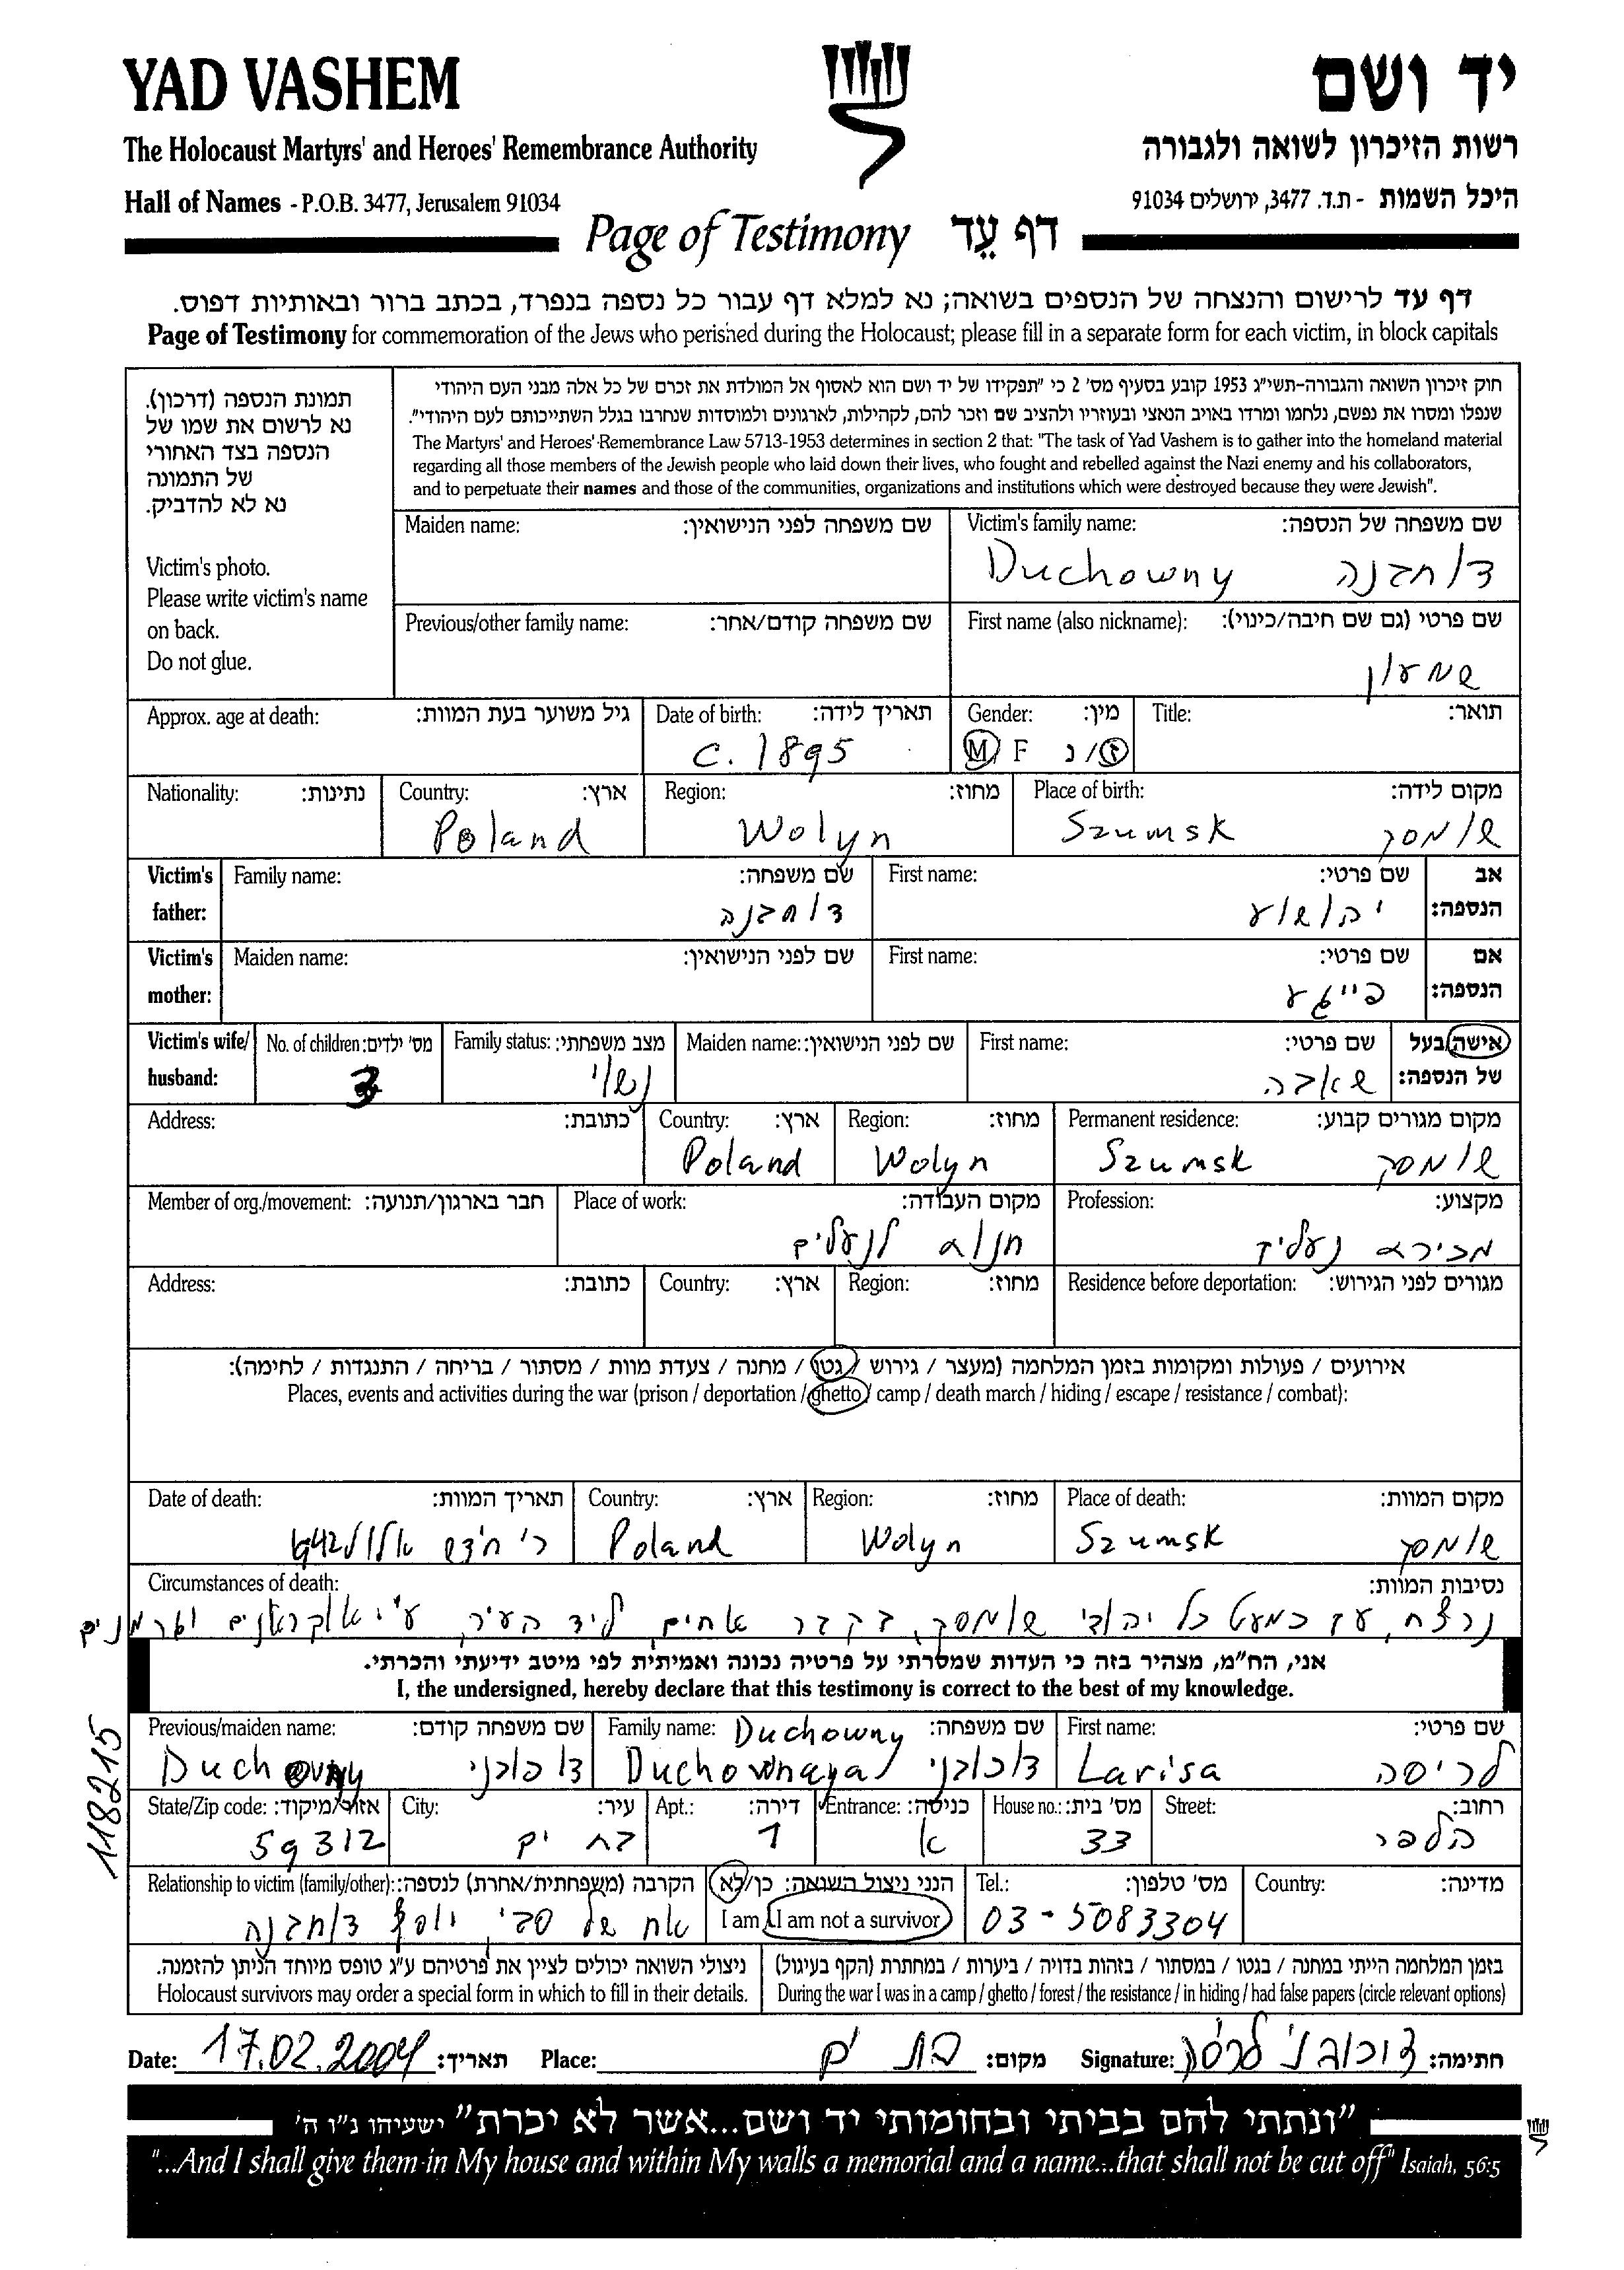 YAD VASHEM
יד ושם
The Holocaust Martyrs' and Heroes' Remembrance Authority
רשות הזיכרון לשואה ולגבורה
Hall of Names - P.O.B. 3477, Jerusalem 91034
היכל השמות - ת.ד. 3477, ירושלים 91034
Page of Testimony דף עֵד
דף עד לרישום והנצחה של הנספים בשואה; נא למלא דף עבור כל נספה בנפרד, בכתב ברור ובאותיות דפוס.
Page of Testimony for commemoration of the Jews who perished during the Holocaust; please fill in a separate form for each victim, in block capitals
תמונת הנספה (דרכון).
נא לרשום את שמו של
הנספה בצד האחורי
של התמונה
נא לא להדביק.
Victim's photo.
Please write victim's name
on back.
Do not glue.
חוק זיכרון השואה והגבורה-תשי"ג 1953 קובע בסעיף מס' 2 כי "תפקידו של יד ושם הוא לאסוף אל המולדת את זכרם של כל אלה מבני העם היהודי
שנפלו ומסרו את נפשם, נלחמו ומרדו באויב הנאצי ובעוזריו ולהציב שם וזכר להם, לקהילות, לארגונים ולמוסדות שנחרבו בגלל השתייכותם לעם היהודי".
The Martyrs' and Heroes' Remembrance Law 5713-1953 determines in section 2 that: "The task of Yad Vashem is to gather into the homeland material
regarding all those members of the Jewish people who laid down their lives, who fought and rebelled against the Nazi enemy and his collaborators,
and to perpetuate their names and those of the communities, organizations and institutions which were destroyed because they were Jewish".
Maiden name: שם משפחה לפני הנישואין:
Victim's family name: שם משפחה של הנספה:
Duchowny דוחבנה
Previous/other family name: שם משפחה קודם/אחר:
First name (also nickname): שם פרטי (גם שם חיבה/כינוי):
שמעון
Approx. age at death: גיל משוער בעת המוות:
Date of birth: תאריך לידה:
Gender: מין:
Title: תואר:
c. 1895
M F ז/נ
Nationality: נתינות:
Country: ארץ:
Region: מחוז:
Place of birth: מקום לידה:
Poland
Wolyn
Szumsk שומסק
Victim's father: Family name: שם משפחה:
First name: שם פרטי:
אב הנספה:
דוחבנה
יהושע
Victim's mother: Maiden name: שם לפני הנישואין:
First name: שם פרטי:
אם הנספה:
פייגע
Victim's wife/ husband: No. of children: מס' ילדים:
Family status: מצב משפחתי:
Maiden name: שם לפני הנישואין:
First name: שם פרטי:
אישה/בעל של הנספה:
3
נשוי
Address: כתובת:
Country: ארץ:
Region: מחוז:
Permanent residence: מקום מגורים קבוע:
Poland
Wolyn
Szumsk שומסק
Member of org./movement: חבר בארגון/תנועה:
Place of work: מקום העבודה:
Profession: מקצוע:
חנות לנעלים
Address: כתובת:
Country: ארץ:
Region: מחוז:
Residence before deportation: מגורים לפני הגירוש:
אירועים / פעולות ומקומות בזמן המלחמה (מעצר / גירוש / גטו / מחנה / צעדת מוות / מסתור / בריחה / התנגדות / לחימה):
Places, events and activities during the war (prison / deportation / ghetto / camp / death march / hiding / escape / resistance / combat):
Date of death: תאריך המוות:
Country: ארץ:
Region: מחוז:
Place of death: מקום המוות:
חדש אלול 1942
Poland
Wolyn
Szumsk שומסק
Circumstances of death: נסיבות המוות:
נרצח, עם כמעט כל יהודי שומסק, בקבר אחים, ליד העיר, ע"י אוקראינים וגרמנים
אני, הח"מ, מצהיר בזה כי העדות שמסרתי על פרטיה נכונה ואמיתית לפי מיטב ידיעתי והכרתי.
I, the undersigned, hereby declare that this testimony is correct to the best of my knowledge.
118215
Previous/maiden name: שם משפחה קודם:
Family name: שם משפחה:
First name: שם פרטי:
Duchowny
Duchowny דוכובני
Duchownaya דוכובני
Larisa לריסה
State/Zip code: אזור/מיקוד:
City: עיר:
Apt.: דירה:
Entrance: כניסה:
House no.: מס' בית:
Street: רחוב:
59312
בת ים
1
א
33
הלפר
Relationship to victim (family/other): הקרבה (משפחתית/אחרת) לנספה:
הנני ניצול השואה: כן/לא
Tel.: מס' טלפון:
Country: מדינה:
אח של סבי יוסף דוחבנה
I am / I am not a survivor
03-5083304
ניצולי השואה יכולים לציין את פרטיהם ע"ג טופס מיוחד הניתן להזמנה.
Holocaust survivors may order a special form in which to fill in their details.
בזמן המלחמה הייתי במחנה / בגטו / במסתור / בזהות בדויה / ביערות / במחתרת (הקף בעיגול)
During the war I was in a camp / ghetto / forest / the resistance / in hiding / had false papers (circle relevant options)
Date: 17.02.2004 תאריך: Place: בת ים מקום: Signature: דוכובני לריסה חתימה:
"ונתתי להם בביתי ובחומותי יד ושם...אשר לא יכרת" ישעיהו נ"ו ה'
"...And I shall give them in My house and within My walls a memorial and a name...that shall not be cut off" Isaiah, 56:5